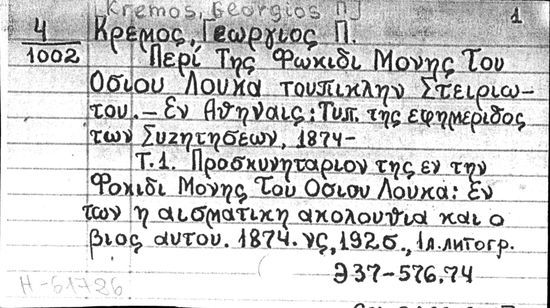 Kremos, Georgios П]
1
4/1002
Κρεμος, Γεωργιος Π.
Περί Της Φωκιδι Μονης Του
Οσιου Λουκα τουπικλην Στειριω-
του. – Εν Αθηναις: Τυπ. της εφημεριδος
των Συζητησεων, 1874-
Τ.1. Προσκυνηταριον της εν την
Φοκιδι Μονης Του Οσιου Λουκα: Εν
των η αισματικη ακολουθια και ο
βιος αυτου. 1874. νς, 192σ., 1л. литогр.
Э37-576.74
H-61726